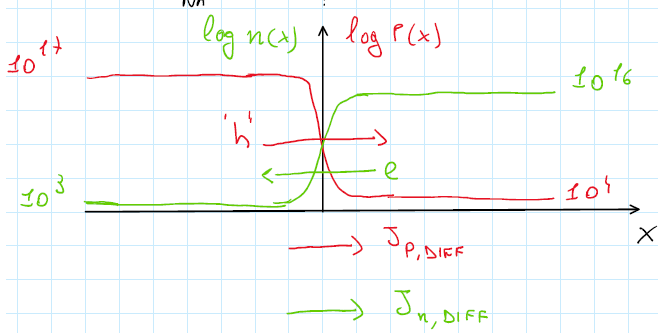 log n(x) log P(x)
10^17
10^16
'h'
e
10^3
10^4
x
J_P,DIFF
J_n,DIFF